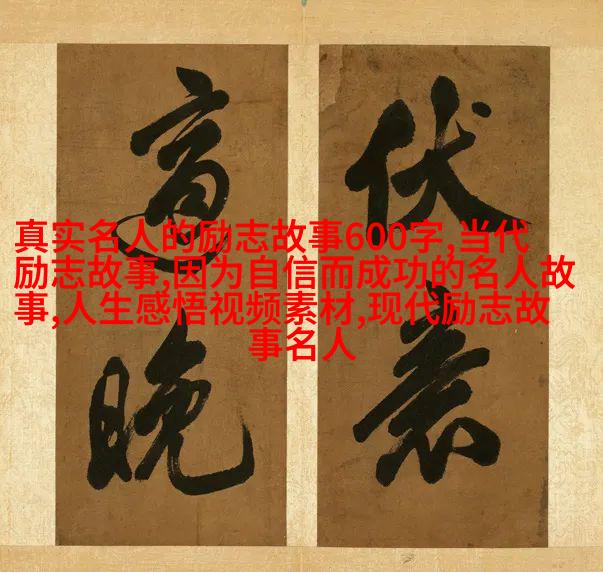 真实名人的励志故事600字,当代
励志故事,因为自信而成功的名人故
事,人生感悟视频素材,现代励志故
事名人
伏
晚